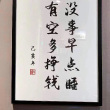 没事早点睡
有空多挣钱
己亥